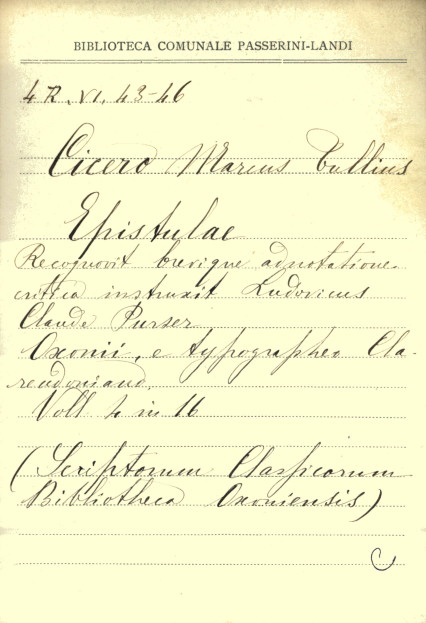 BIBLIOTECA COMUNALE PASSERINI-LANDI
4 R. VI, 43-46
Cicero Marcus Tullius
Epistulae
Recognovit brevique adnotatione
critica instruxit Ludovicus
Claude Purser
Oxonii, e typographeo Cla-
rendoniano.
Voll 4 in 16
(Scriptorum Classicorum
Bibliotheca Oxoniensis)
C